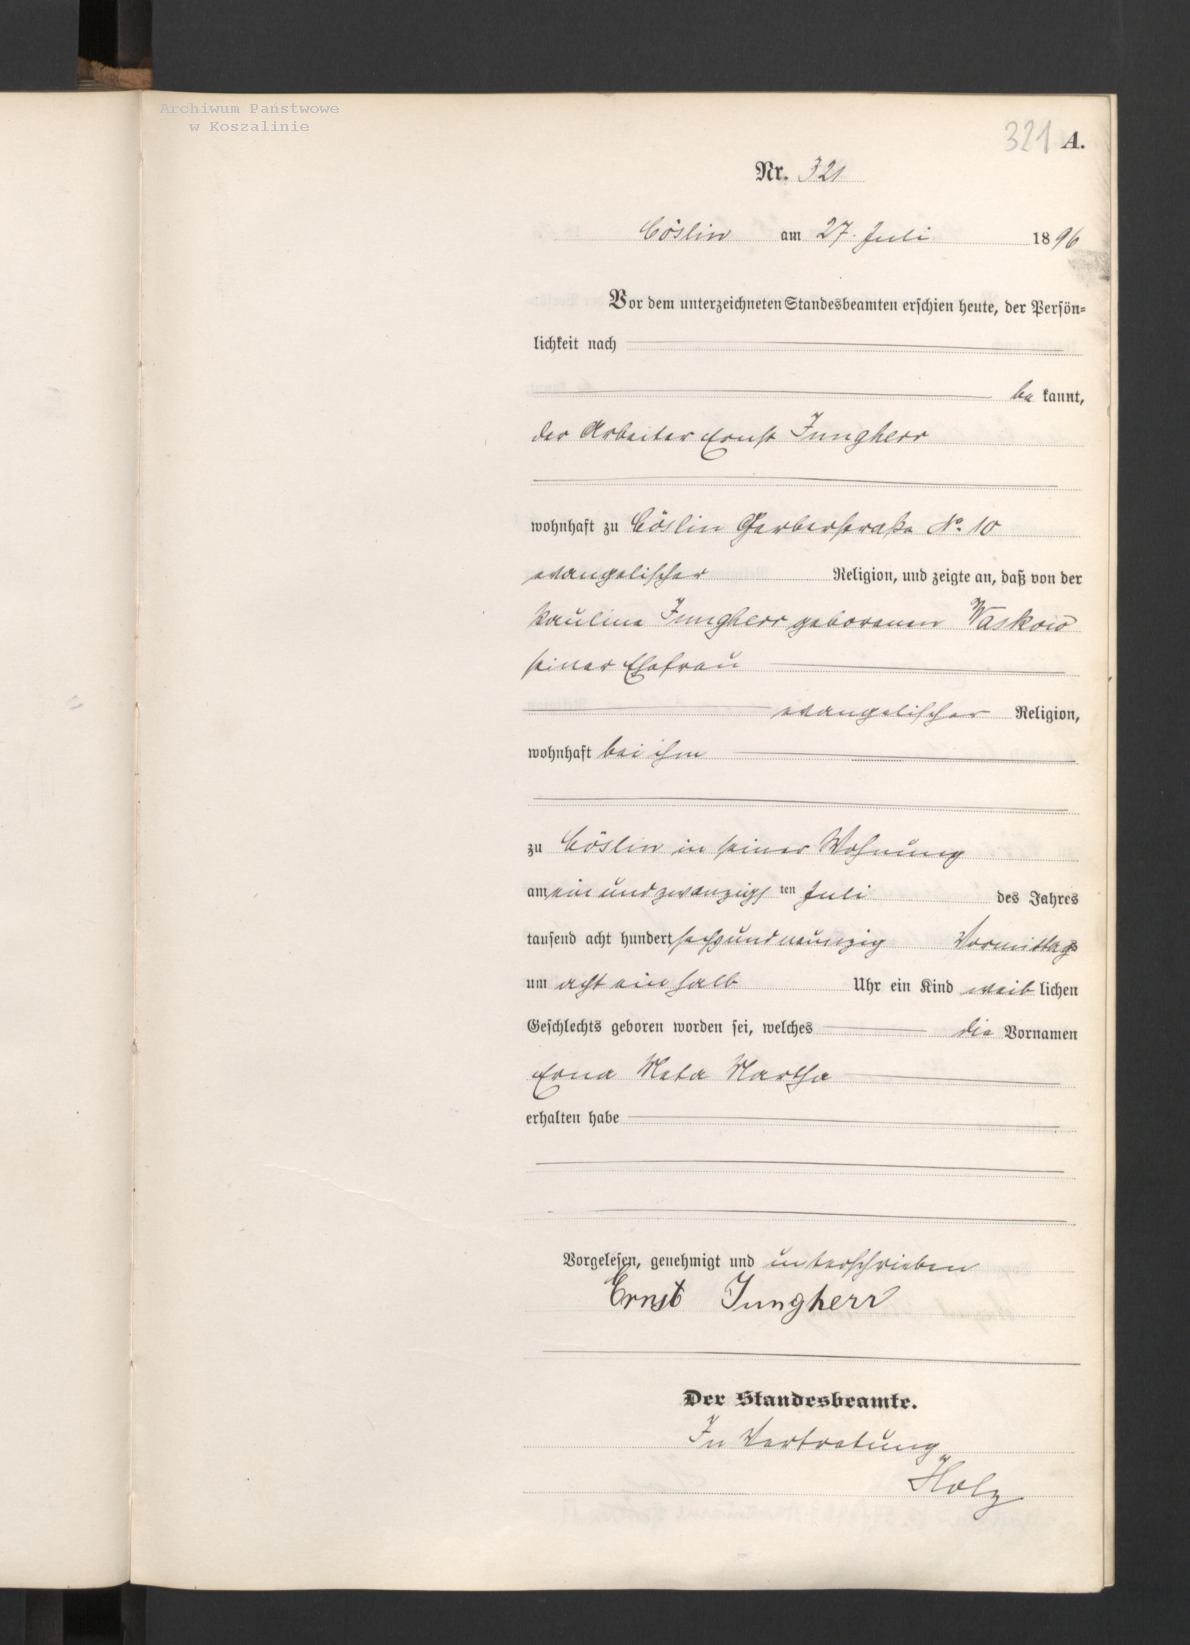 Archiwum Państwowe
w Koszalinie
321 A.
Nr. 321
Cöslin am 27. Juli 1896
Vor dem unterzeichneten Standesbeamten erschien heute, der Persön=
lichkeit nach
be kannt,
der Arbeiter Ernst Jungherr
wohnhaft zu Cöslin Gerberstraße No. 10
evangelischer Religion, und zeigte an, daß von der
Pauline Jungherr geborenen Waskow
seiner Ehefrau
evangelischer Religion,
wohnhaft bei ihm
zu Cöslin in seiner Wohnung
am ein und zwanzigs ten Juli des Jahres
tausend acht hundert sechs und neunzig Vormittags
um acht ein halb Uhr ein Kind weib lichen
Geschlechts geboren worden sei, welches die Vornamen
Erna Meta Martha
erhalten habe
Vorgelesen, genehmigt und unterschrieben
Ernst Jungherr
Der Standesbeamte.
In Vertretung
Holz